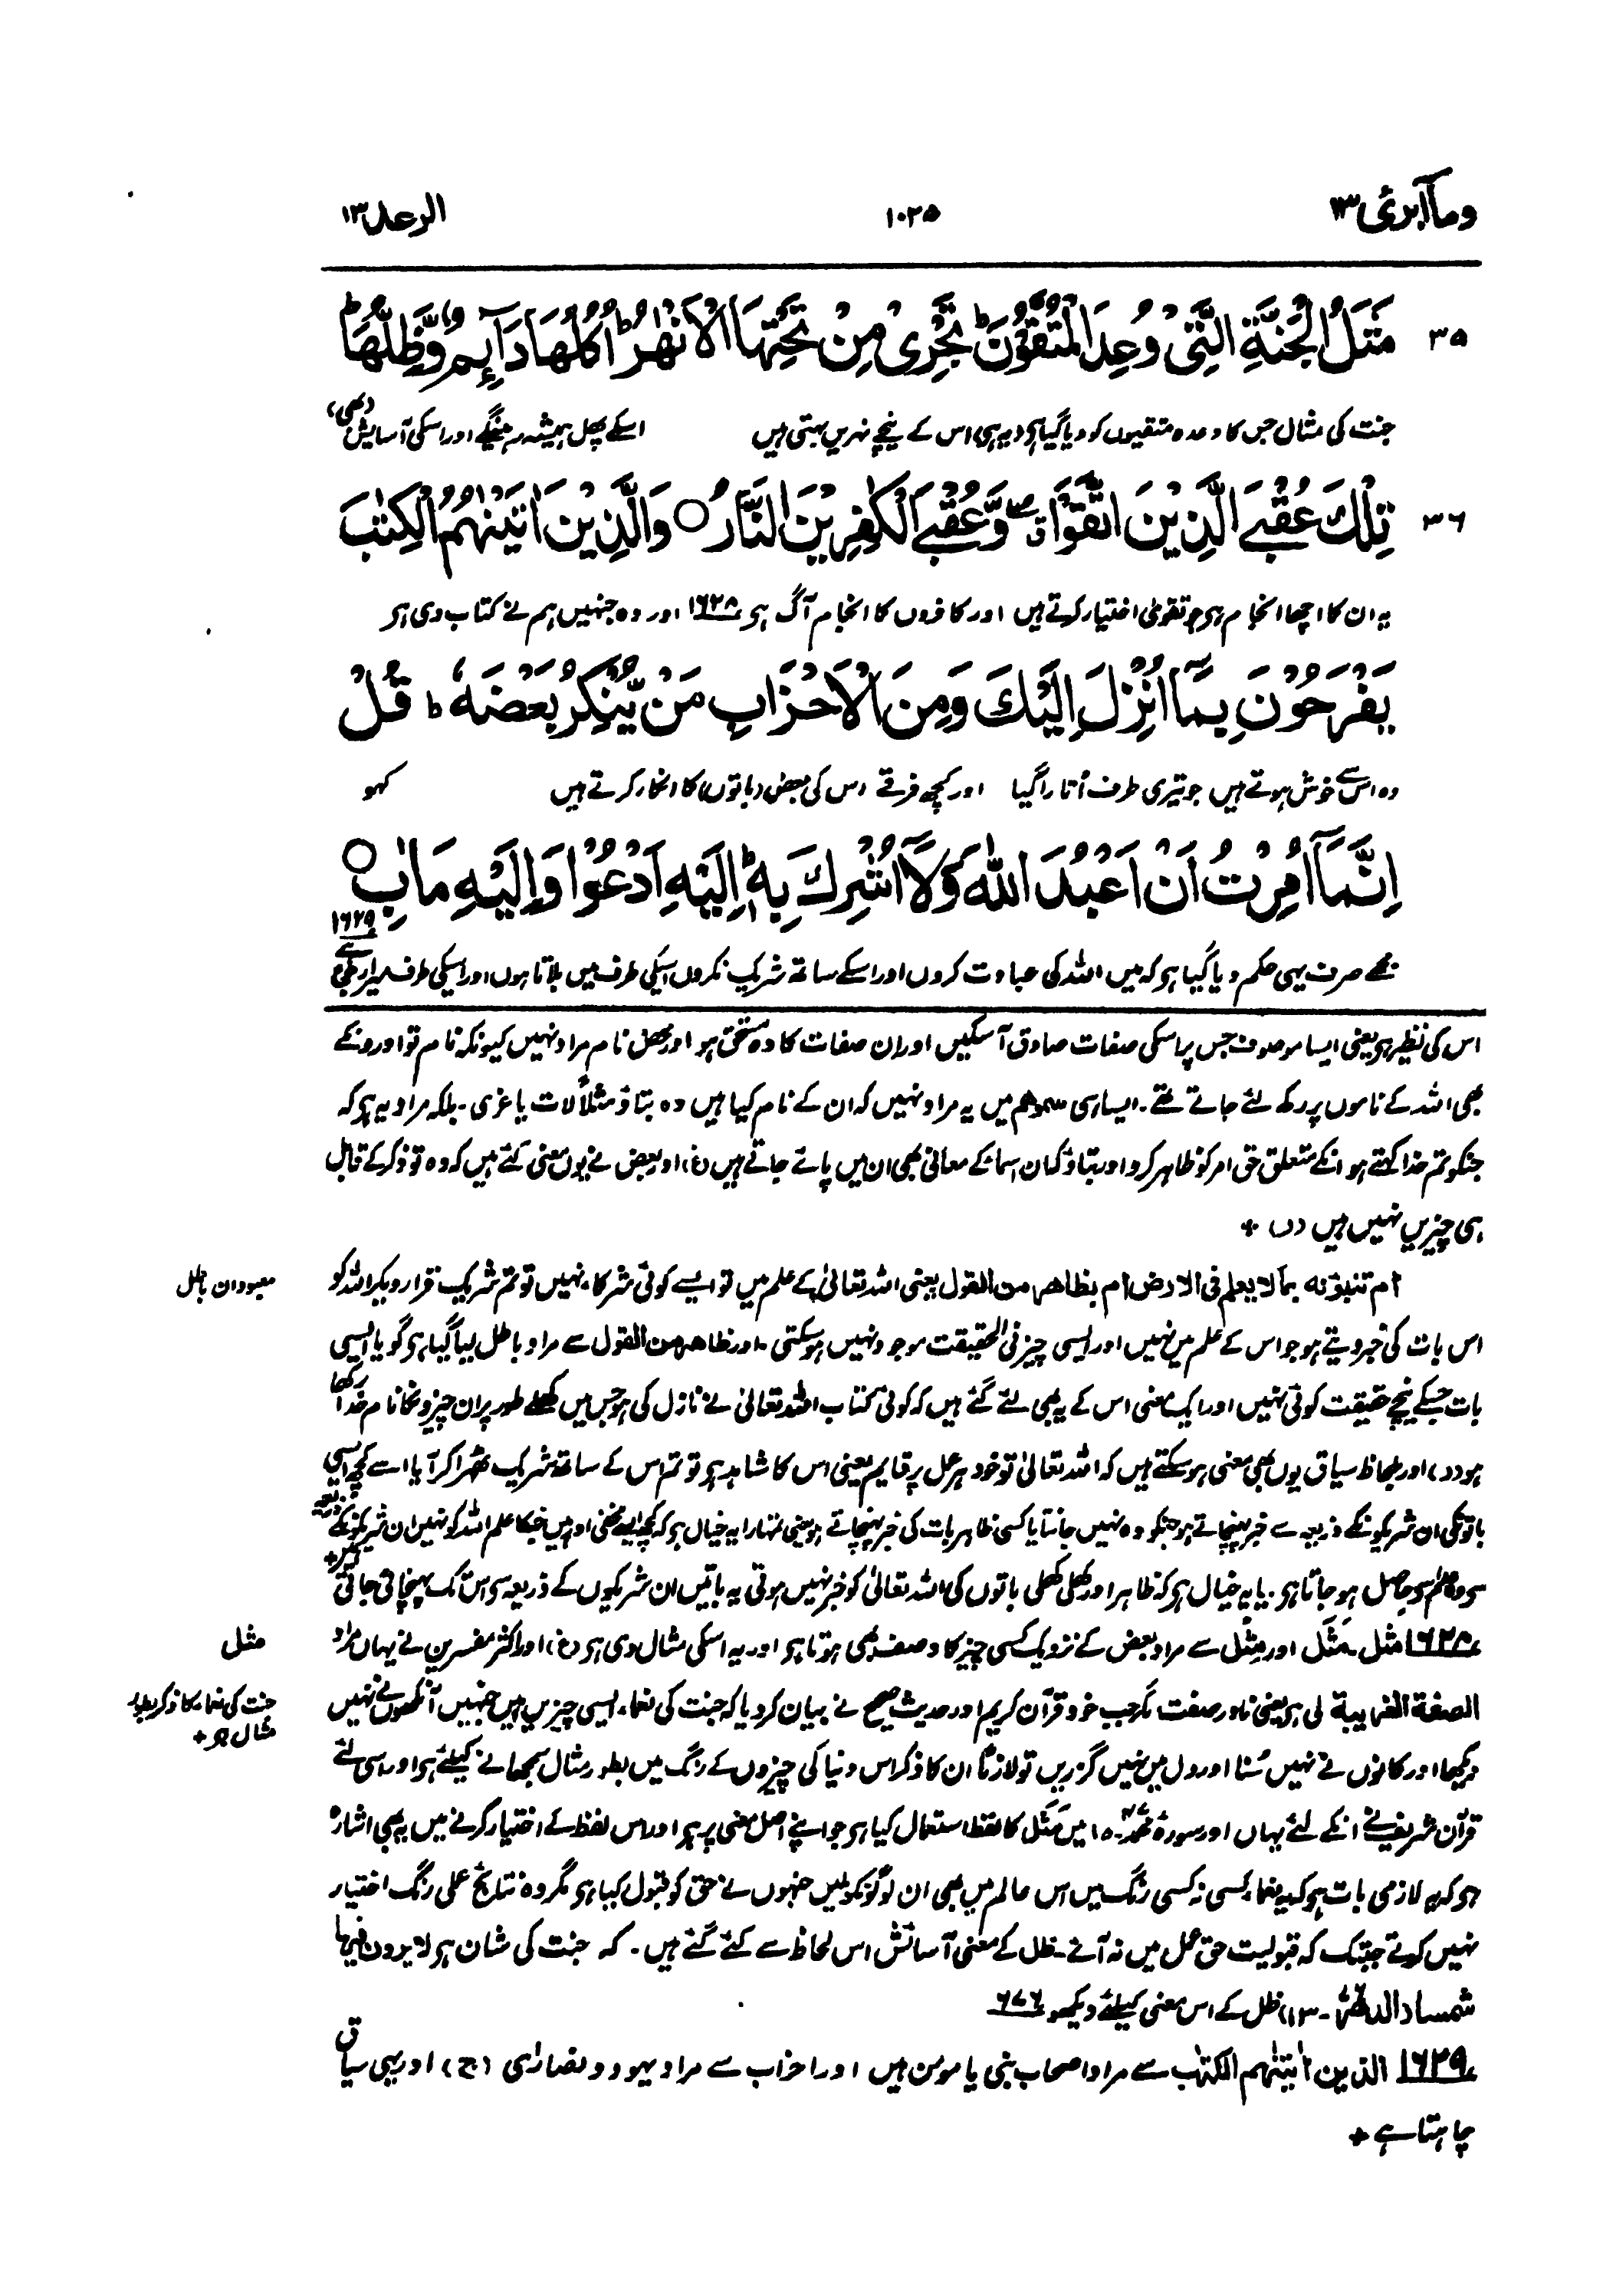 ومآ ابرئ ١٣
١٠٢٥
الرعد ١٣
٣٥ مَثَلُ الْجَنَّةِ الَّتِیْ وُعِدَ الْمُتَّقُوْنَ ؕ تَجْرِیْ مِنْ تَحْتِهَا الْاَنْهٰرُ ؕ اُكُلُهَا دَآىِٕمٌ وَّظِلُّهَا ؕ
جنت کی مثال جس کا وعدہ متقیوں کو دیا گیا ہی (یہ ہی) اس کے نیچے نہریں بہتی ہیں اسکے پھل ہمیشہ رہینگے اور اسکی آسایش (بھی)
٣٦ تِلْكَ عُقْبَی الَّذِیْنَ اتَّقَوْا ۖۗ وَّعُقْبَی الْكٰفِرِیْنَ النَّارُ ○ وَالَّذِیْنَ اٰتَیْنٰهُمُ الْكِتٰبَ
یہ ان کا اچھا انجام ہی جو تقویٰ اختیار کرتے ہیں اور کافروں کا انجام آگ ہی ١٦٢٨ اور وہ جنہیں ہم نے کتاب دی ہی
یَفْرَحُوْنَ بِمَاۤ اُنْزِلَ اِلَیْكَ وَمِنَ الْاَحْزَابِ مَنْ یُّنْكِرُ بَعْضَهٗ ؕ قُلْ
وہ اس سے خوش ہوتے ہیں جو تیری طرف اُتارا گیا اور کچھ فرقے اس کی بعض (باتوں) کا انکار کرتے ہیں کہو
اِنَّمَاۤ اُمِرْتُ اَنْ اَعْبُدَ اللّٰهَ وَلَاۤ اُشْرِكَ بِهٖ ؕ اِلَیْهِ اَدْعُوْا وَاِلَیْهِ مَاٰبِ ○
١٦٢٩
مجھے صرف یہی حکم دیا گیا ہی کہ میں اللہ کی عبادت کروں اور اسکے ساتھ شریک نکروں اسیکی طرف میں بلاتا ہوں اور اسیکی طرف میرا رجوع ہے
اس کی نظیر ہی یعنی ایسا موصوف جس پر اسکی صفات صادق آ سکیں اور ان صفات کا وہ مستحق ہو اور محض نام مراد نہیں کیونکہ نام تو اورونکے
بھی اللہ کے ناموں پر رکھ لئے جاتے تھے۔ ایسا ہی سموھم میں یہ مراد نہیں کہ ان کے نام کیا ہیں وہ بتاؤ مثلاً لات یا عزی۔ بلکہ مراد یہ ہی کہ
جنکو تم خدا کہتے ہو انکے متعلق حق امر کو ظاہر کرو اور بتاؤ کہ ان اسماء کے معانی بھی ان میں پائے جاتے ہیں (غ) اور بعض نے یوں معنی کئے ہیں کہ وہ تو ذکر کے قابل
ہی چیزیں نہیں ہیں (ر) +
معبودان باطل
ام تنبؤنہ بما لا یعلم فی الارض ام بظاھر من القول یعنی اللہ تعالیٰ کے علم میں تو ایسے کوئی شرکاء نہیں تو تم شریک قرار دیکر اللہ کو
اس بات کی خبر دیتے ہو جو اس کے علم میں نہیں اور ایسی چیز فی الحقیقت موجود نہیں ہو سکتی۔ اور ظاھر من القول سے مراد باطل لیا گیا ہی گویا ایسی
بات جسکے نیچے حقیقت کوئی نہیں اور ایک معنی اس کے یہ بھی لئے گئے ہیں کہ کوئی کتاب اللہ تعالیٰ نے نازل کی ہو جس میں کھلے طور پر ان چیزونکا نام خدا رکھا
ہو (ر) اور بلحاظ سیاق یوں بھی معنی ہو سکتے ہیں کہ اللہ تعالیٰ تو خود ہر عمل پر قایم یعنی اس کا شاہد ہی تو تم اس کے ساتھ شریک ٹھہرا کر آیا اسے کچھ ایسی
باتونکی ان شریکونکے ذریعہ سے خبر پہنچاتے ہو جنکو وہ نہیں جانتا یا کسی ظاہر بات کی خبر پہنچاتے ہو یعنی تمہارا یہ خیال ہی کہ کچھ ایسے مخفی امور ہیں جنکا علم اللہ کو نہیں ان شریکونکے ذریعہ
سے وہ علم اسے حاصل ہو جاتا ہی۔ یا یہ خیال ہی کہ ظاہر اور کھلی کھلی باتوں کی اللہ تعالیٰ کو خبر نہیں ہوتی یہ باتیں ان شریکوں کے ذریعہ سے اس تک پہنچائی جاتی ہیں +
مثل
١٦٢٨ مثل۔ مَثَل اور مِثْل سے مراد بعض کے نزدیک کسی چیز کا وصف بھی ہوتا ہی اور یہ اسکی مثال دی ہی (غ) اور اکثر مفسرین نے یہاں مراد
جنت کی نعماء کا ذکر بطور مثال ہی +
الصفة الغریبة لی ہی یعنی نادر صفت مگر جب خود قرآن کریم اور حدیث صحیح نے بیان کر دیا کہ جنت کی نعماء ایسی چیزیں ہیں جنہیں آنکھوں نے نہیں
دیکھا اور کانوں نے نہیں سُنا اور دل میں نہیں گزریں تو لازماً ان کا ذکر اس دنیا کی چیزوں کے رنگ میں بطور مثال سمجھانے کیلئے ہی اور اسی لئے
قرآن شریف نے انکے لئے یہاں اور سورۂ محمد۔ ١٥ میں مَثَل کا لفظ استعمال کیا ہی جو اپنے اصل معنی پر ہی اور اس لفظ کے اختیار کرنے میں یہ بھی اشارہ
ہی کہ یہ لازمی بات ہی کہ یہ نعماء کسی نہ کسی رنگ میں اس عالم میں بھی ان لوگونکو ملیں جنہوں نے حق کو قبول کیا ہی مگر وہ نتائج عملی رنگ اختیار
نہیں کرتے جبتک کہ قبولیت حق عمل میں نہ آئے۔ ظل کے معنی آسائش اس لحاظ سے کئے گئے ہیں۔ کہ جنت کی شان ہی لا یرون فیھا
شمسا (الدھر۔ ١٣) ظل کے اس معنی کیلئے دیکھو ٦٧٦
١٦٢٩ الذین اٰتینٰھم الکتٰب سے مراد اصحاب نبی یا مومن ہیں اور احزاب سے مراد یہود و نصارٰی (ج) اور یہی سیاق
چاہتا ہے +